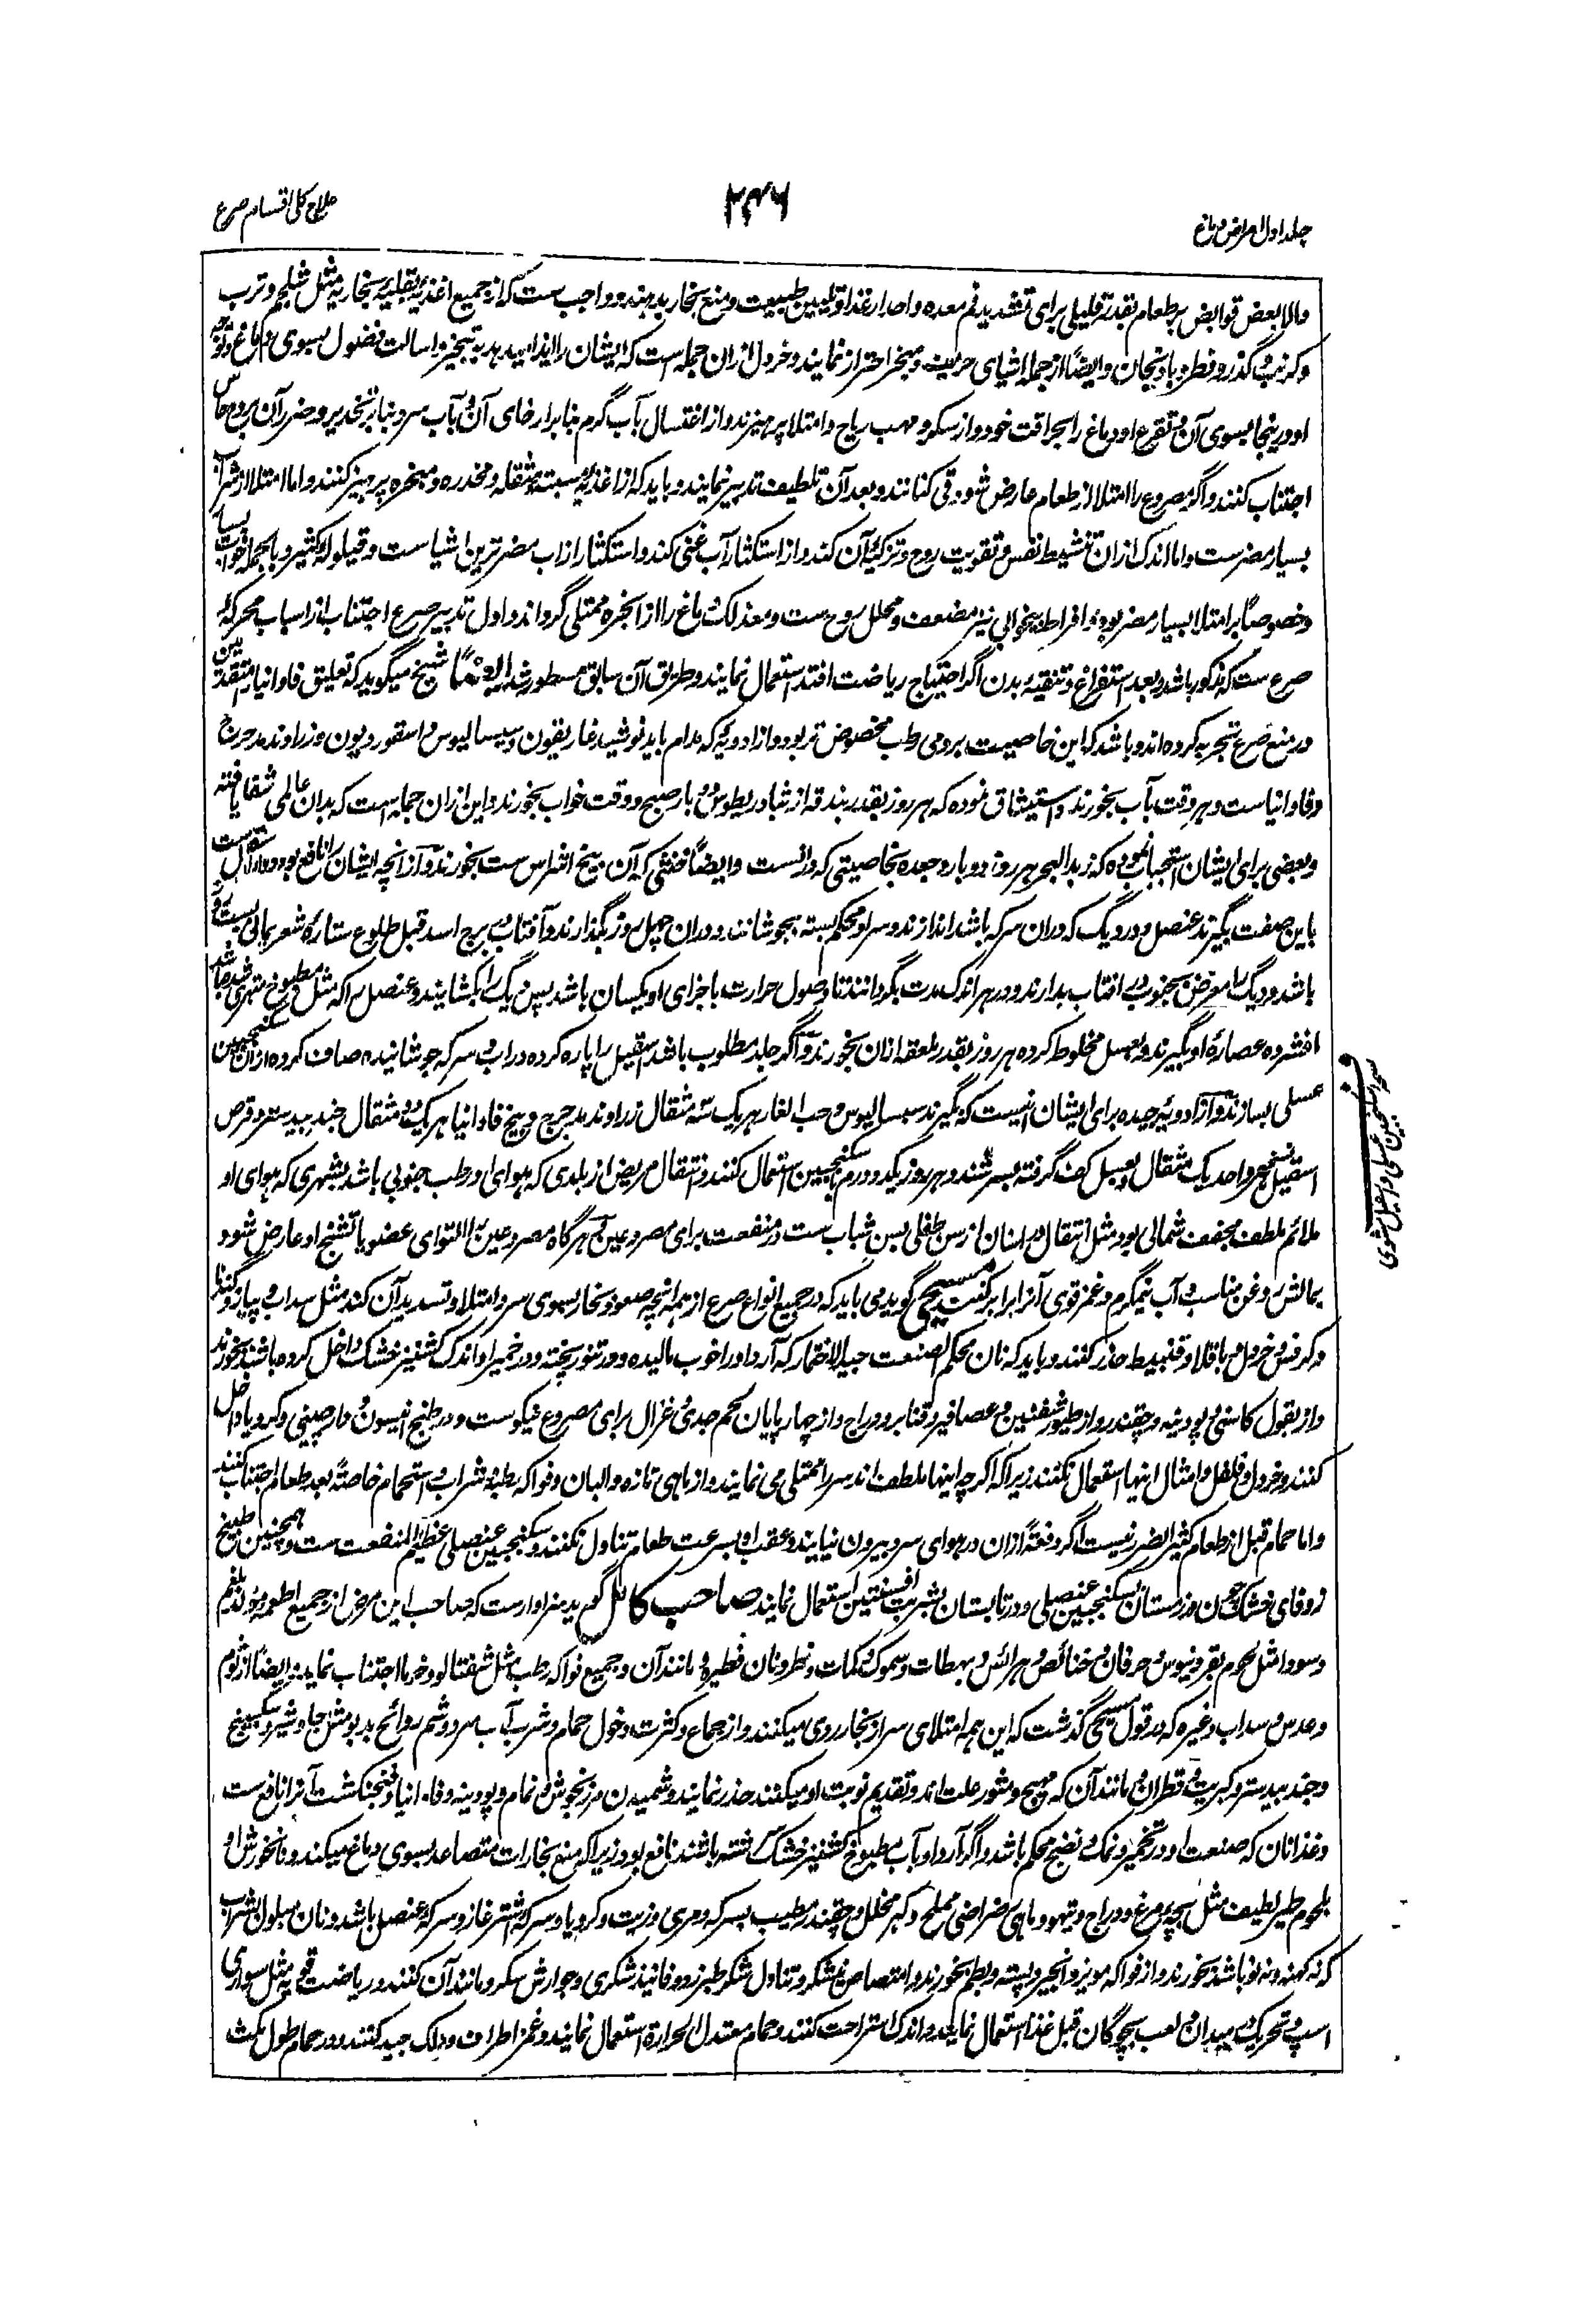 جلد اول امراض دماغ
۲۴۶
علاج کلی اقسام صرع
والا بعض قوابض بر طعام بقدر قلیلی برای تشدید فم معده و احدار غذا و تلیین طبیعت و منع بخار بدهند و واجب ست که از جمیع اغذیه ثقلیه بخاریه مثل شلجم و ترب
و کرنب و گذر و فطر و بادنجان و ایضاً از جمله اشیای حریف و مبخر احتراز نمایند و خردل ازان جمله است که ایشان را ایذا میدهد به تبخیر و اسالت فضول بسوی دماغ و توجه
او در ینجا بسوی آن و تقرع او دماغ را بحراقت خود و از سکر و مهب ریاح و امتلا پرهیزند و از اغتسال بآب گرم بنابر ارخای آن و بآب سرد بنابر تخدیر و ضرر آن بروح حاس
اجتناب کنند و اگر مصروع را امتلا از طعام عارض شود قی کنانند و بعد آن تلطیف تدبیر نمایند و باید که از اغذیه مسبته و مثقله و مخدره و مبخره پرهیز کنند و اما امتلا از شراب
بسیار مضرست و اما اندک ازان تنشیط نفس و تقویت روح و تزکیه آن کند و از استکثار آب غنی کند و استکثار از آب مضرترین اشیاست و قیلوله کثیر و بالجمله خواب بسیار
و خصوصاً بر امتلا بسیار مضر بود و افراط بیخوابی نیز مضعف و محلل روح ست و معذلک دماغ را از ابخره ممتلی گرداند و اول تدبیر صرع اجتناب از اسباب محرکه
صرع ست که مذکور باشد و بعد استفراغ و تنقیه بدن اگر احتیاج ریاضت افتد استعمال نمایند و طریق آن سابق مسطور شد ایضاً شیخ میگوید که تعلیق فاوانیا متقدمین
در منع صرع تجربه کرده اند و باشد که این خاصیت برومی رطب مخصوص تر بود و از ادویه که مدام باید نوشید غاریقون و سیسالیوس و اسقوردیون و زراوند مدحرج
و فاوانیاست و هر وقت بآب بخورند و استیشاق نموده که هر روز بقدر بندقه از شیادریطوس دو بار صبح و وقت خواب بخورند و این ازان جمله است که بدان عالمی شفا یافته
و بعضی برای ایشان استحباب نموده که زبد البحر هر روز دو بار و جعده بخاصیتی که دراست و ایضاً خنثی که آن بیخ اشراس ست بخورند و از آنچه ایشان را نافع بود
باین صفت بگیرند عنصل و در دیگ که دران سرکه باشد اندازند و سر او محکم بسته بجوشانند و دران چهل روز بگذارند و آفتاب در برج اسد قبل طلوع ستاره شعر یمانی بیست روز
باشد و دیگ را معرض بجنوب در افتاب بدارند و در هر اندک مدت بگردانند تا وصول حرارت باجزای او یکسان باشد پس دیگ را بکشایند و عنصل را که مثل مطبوخ متهری شده باشد
افشرده عصاره او بگیرند و بعسل مخلوط کرده هر روز بقدر ملعقه ازان بخورند و اگر جلد مطلوب باشد اسقیل را پاره کرده در آب و سرکه جوشانیده صاف کرده ازان سکنجبین
عسلی بسازند و از ادویه چیده برای ایشان اینست که گیرند سیسالیوس و حب الغار هریک سه مثقال زراوند مدحرج و بیخ فاوانیا هریک دو مثقال جند بیدستر و قرص
اسقیل هر واحد یک مثقال و بعسل کف گرفته بسرشند و هر روز یکدو درم بسکنجبین استعمال کنند و انتقال مریض از بلدی که هوای او رطب جنوبی باشد بشهری که هوای او
ملائم ملطف مجفف شمالی بود مثل انتقال در اسنان از سن طفلی بسن شباب ست در منفعت برای مصروعین و هرگاه مصروعین را التوای عضو یا تشنج او عارض شود
بمالش روغن مناسب و آب نیمگرم و غمز قوی آنرا برابر کنند مسیحی گوید می باید که در جمیع انواع صرع از همه انچه صعود بخار بسوی سر و امتلا و تسدید آن کند مثل سداب و پیاز و گندنا
و کرفس و خردل و باقلا و قنبیط حذر کنند و باید که نان محکم الصنعت جید الاختمار که آرد او را خوب مالیده و در تنور پخته و در خمیر او اندک کشنیز خشک داخل کرده باشند بخورند
و از بقول کاسنی و پودینه و چقندر و از طیور شفنین و عصافیر و قنابر و دراج و از چهار پایان لحم جدی و غزال برای مصروع نیکوست و در طبخ انیسون و دارچینی و کرویا داخل
کنند و خردل و فلفل و امثال اینها استعمال نکنند زیرا که اگرچه اینها ملطف اند سر را ممتلی می نمایند و از ماهی تازه و البان و فواکه رطبه و شراب و استحمام خاصةً بعد طعام اجتناب کنند
و اما حمام قبل از طعام کثیر الضرر نیست اگر دفعةً ازان در هوای سرد بیرون نیایند و عقب او بسرعت طعام تناول نکنند و سکنجبین عنصلی عظیم المنفعت ست و همچنین طبیخ
زوفای خشک چون در زمستان بسکنجبین عنصلی و در تابستان بشربت افسنتین استعمال نمایند صاحب کامل گوید سزاوارست که صاحب این مرض از جمیع اطعمه مولد بلغم
و سودا مثل لحوم بقر و تیوس و خرفان و خنائص و هرائس و بهطات و سموک و کمات و فطر و نان فطیر و مانند آن و جمیع فواکه رطب مثل شفتالو و خرما اجتناب نماید و ایضاً از ثوم
و عدس و سداب و غیره که در قول مسیحی گذشت که این همه امتلای سر از بخار ردی میکنند و از جماع و کثرت دخول حمام و شرب آب سرد و شم روائح بدبو مثل جاوشیر و سکبینج
و جند بیدستر و کبریت و قطران و مانند آن که مهیج و مثور علت اند و تقدیم نوبت او میکنند حذر نمایند و شمیدن مرزنجوش و نمام و پودینه و فاوانیا و فنجنکشت آنرا نافع ست
و غذا نان که صنعت او در تخمیر و نمک و نضج محکم باشد و اگر آرد او بآب مطبوخ کشنیز خشک سرشته باشند نافع بود زیرا که منع بخارات متصاعد بسوی دماغ میکند و نانخورش او
بلحوم طیر لطیف مثل بچه مرغ و دراج و تیهو و ماهی رضراضی مملح و کبر مخلل و چقندر مطیب بسرکه و مری و زیت و کرویا و سرکه اشترغاز و سرکه عنصل باشد و نان مبلول بشراب
که نه کهنه و نه نو باشد بخورند و از فواکه مویز و انجیر و پسته و بطم بخورند و امتصاص نیشکر و تناول شکر طبرزد و فانیذ شکری و جوارش سکر و مانند آن کنند و ریاضت قویه مثل سواری
اسپ و تحریک در میدان و لعب بچوگان قبل غذا استعمال نمایند و اندک استراحت کنند و حمام معتدل الحرارة استعمال نمایند و غمز اطراف و دلک جید کنند و در حمام طول مکث